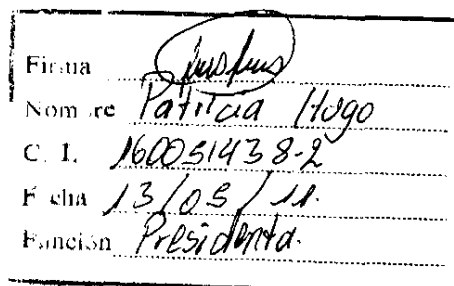 Firma
Nombre Patricia Hugo
C. I. 160051438-2
Fecha 13/05/11.
Función Presidenta.